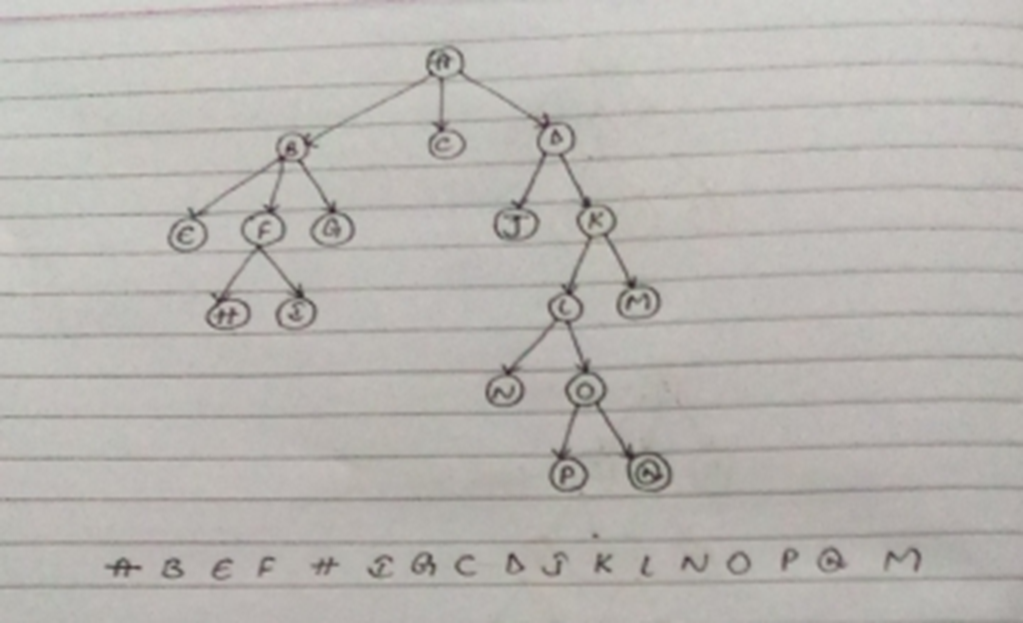 A
B C D
E F G J K
H I L M
N O
P Q
A B E F H I G C D J K L N O P Q M